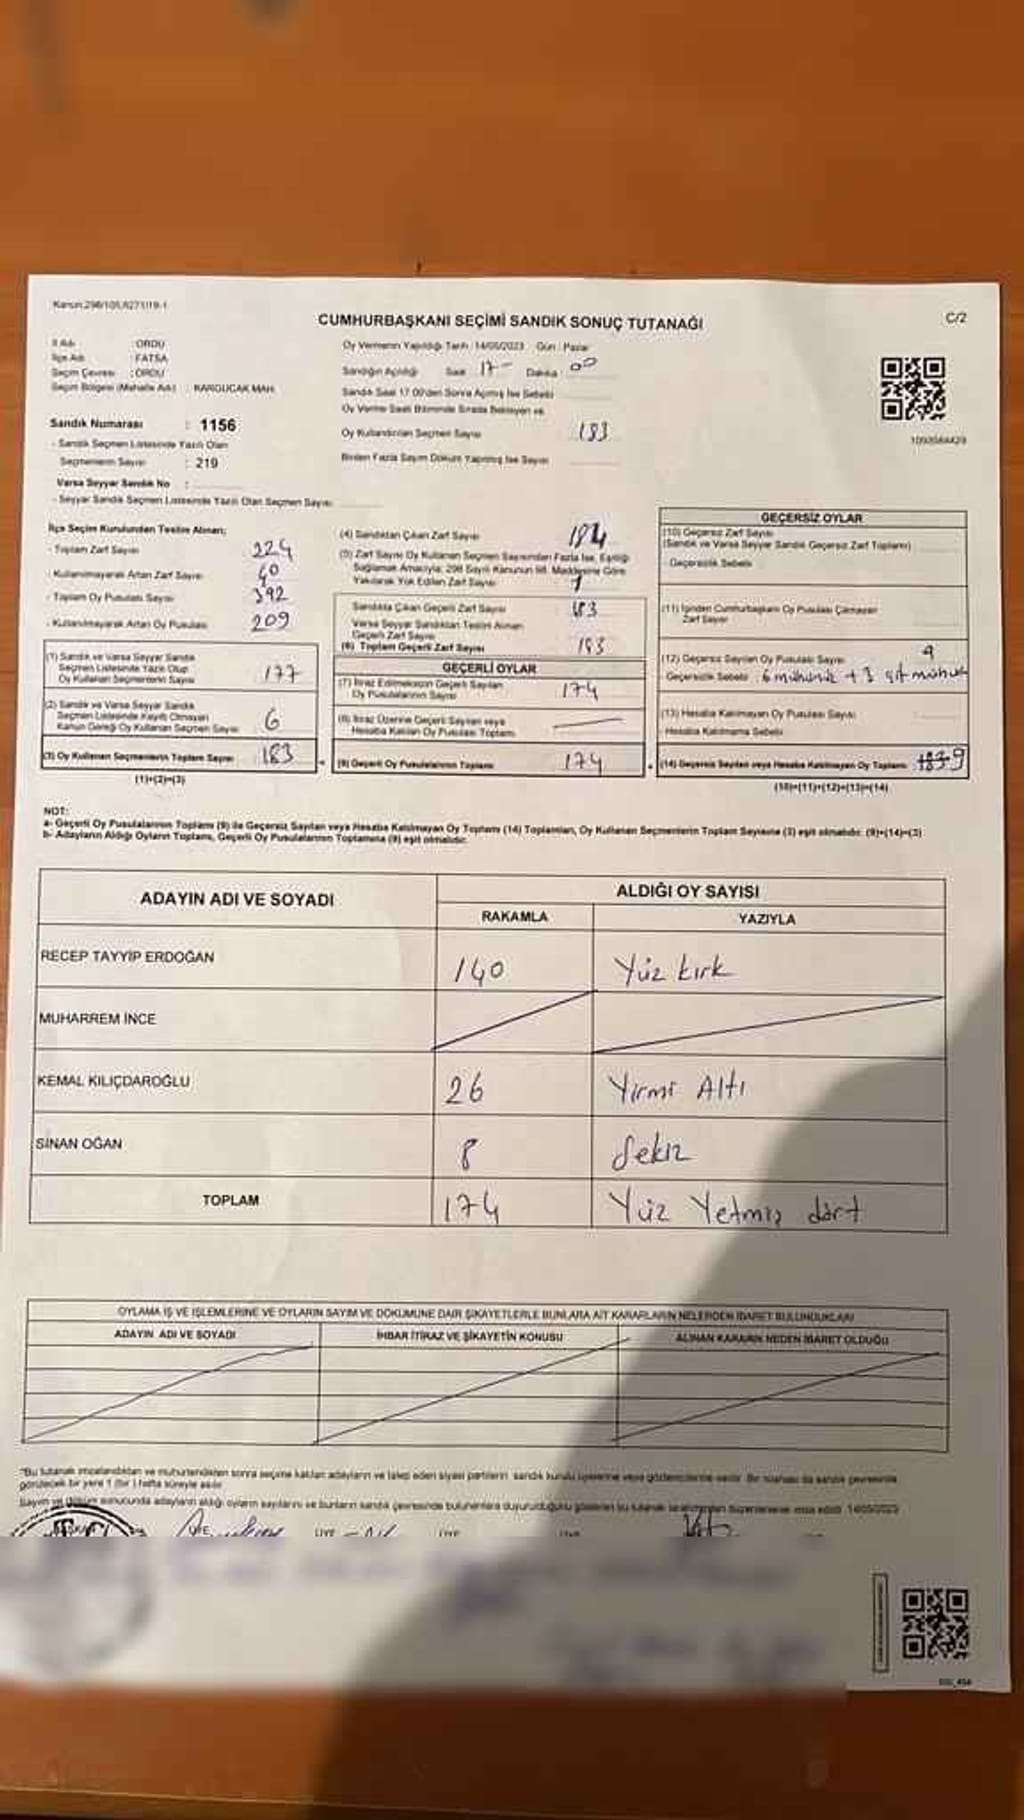 Kanun:298/105,6271/19-1
CUMHURBAŞKANI SEÇİMİ SANDIK SONUÇ TUTANAĞI
C/2
İl Adı : ORDU
İlçe Adı : FATSA
Seçim Çevresi : ORDU
Seçim Bölgesi (Mahalle Adı) :
Sandık Numarası : 1156
- Sandık Seçmen Listesinde Yazılı Olan
Seçmenlerin Sayısı : 219
Varsa Seyyar Sandık No :
- Seyyar Sandık Seçmen Listesinde Yazılı Olan Seçmen Sayısı
Oy Vermenin Yapıldığı Tarih : 14/05/2023 Gün : Pazar
Sandığın Açıldığı Saat 17 Dakika : 00
Sandık Saat 17.00'den Sonra Açılmış İse Sebebi
Oy Verme Saati Bitiminde Sırada Bekleyen ve
Oy Kullandırılan Seçmen Sayısı 183
Birden Fazla Sayım Döküm Yapılmış İse Sayısı
İlçe Seçim Kurulundan Teslim Alınan;
- Toplam Zarf Sayısı 224
- Kullanılmayarak Artan Zarf Sayısı 40
- Toplam Oy Pusulası Sayısı 392
- Kullanılmayarak Artan Oy Pusulası 209
(1) Sandık ve Varsa Seyyar Sandık
Seçmen Listesinde Yazılı Olup
Oy Kullanan Seçmenlerin Sayısı 177
(2) Sandık ve Varsa Seyyar Sandık
Seçmen Listesinde Kayıtlı Olmayan
Kanun Gereği Oy Kullanan Seçmen Sayısı 6
(3) Oy Kullanan Seçmenlerin Toplam Sayısı 183
(1)+(2)=(3)
(4) Sandıktan Çıkan Zarf Sayısı 184
(5) Zarf Sayısı Oy Kullanan Seçmen Sayısından Fazla İse, Eşitliği
Sağlamak Amacıyla; 298 Sayılı Kanunun 98. Maddesine Göre
Yakılarak Yok Edilen Zarf Sayısı 1
Sandıkta Çıkan Geçerli Zarf Sayısı 183
Varsa Seyyar Sandıktan Teslim Alınan
Geçerli Zarf Sayısı
(6) Toplam Geçerli Zarf Sayısı 183
GEÇERLİ OYLAR
(7) İtiraz Edilmeksizin Geçerli Sayılan
Oy Pusulalarının Sayısı 174
(8) İtiraz Üzerine Geçerli Sayılan veya
Hesaba Katılan Oy Pusulası Toplamı
(9) Geçerli Oy Pusulalarının Toplamı 174
GEÇERSİZ OYLAR
(10) Geçersiz Zarf Sayısı
(Sandık ve Varsa Seyyar Sandık Geçersiz Zarf Toplamı)
Geçersizlik Sebebi
(11) İçinden Cumhurbaşkanı Oy Pusulası Çıkmayan
Zarf Sayısı
(12) Geçersiz Sayılan Oy Pusulası Sayısı 9
Geçersizlik Sebebi 6 mühürsüz + 3 çift mühür
(13) Hesaba Katılmayan Oy Pusulası Sayısı
Hesaba Katılmama Sebebi
(14) Geçersiz Sayılan veya Hesaba Katılmayan Oy Toplamı 9
(10)+(11)+(12)+(13)=(14)
NOT:
a- Geçerli Oy Pusulalarının Toplamı (9) ile Geçersiz Sayılan veya Hesaba Katılmayan Oy Toplamı (14) Toplamları, Oy Kullanan Seçmenlerin Toplam Sayısına (3) eşit olmalıdır. (9)+(14)=(3)
b- Adayların Aldığı Oyların Toplamı, Geçerli Oy Pusulalarının Toplamına (9) eşit olmalıdır.
ADAYIN ADI VE SOYADI
ALDIĞI OY SAYISI
RAKAMLA YAZIYLA
RECEP TAYYİP ERDOĞAN 140 Yüz kırk
MUHARREM İNCE
KEMAL KILIÇDAROĞLU 26 Yirmi Altı
SİNAN OĞAN 8 Sekiz
TOPLAM 174 Yüz Yetmiş dört
OYLAMA İŞ VE İŞLEMLERİNE VE OYLARIN SAYIM VE DÖKÜMÜNE DAİR ŞİKAYETLERLE BUNLARA AİT KARARLARIN NELERDEN İBARET BULUNDUKLARI
ADAYIN ADI VE SOYADI İHBAR İTİRAZ VE ŞİKAYETİN KONUSU ALINAN KARARIN NEDEN İBARET OLDUĞU
"Bu tutanak imzalandıktan ve mühürlendikten sonra seçime katılan adayların ve talep eden siyasi partilerin sandık kurulu üyelerine veya gözlemcilerine verilir. Bir nüshası da sandık çevresinde
görülecek bir yere 1 (bir) hafta süreyle asılır.
Sayım ve döküm sonucunda adayların aldığı oyların sayılarını ve bunların sandık çevresinde bulunanlara duyurulduğunu gösteren bu tutanak tarafımızdan düzenlenerek imza edildi. 14/05/2023
BAŞKAN ÜYE ÜYE ÜYE ÜYE